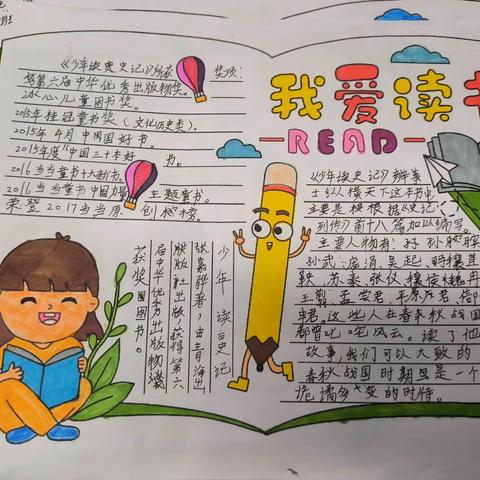 班
我爱读书
READ
《少年读史记》所获奖项:
第六届中华优秀出版物奖。
冰心儿童图书奖。
2015年桂冠童书奖(文化历史类)。
2015年4月中国好书。
2015年度"中国三十本好书。
2016当当童书十大新书。
2016当当童书中国力量主题童书。
荣登2017当当原创榜。
少年读史记
张嘉骅著,由青岛出
版社出版,获得第六
届中华优秀出版物奖
获奖图书。
《少年读史记》辩
士纵横天下这本书中
主要是根据《史记》
列传》前十八篇加以编写。
主要人物有:孙
孙武、庞涓、吴起、
苏秦、张仪、穰侯魏冉
王翦、孟尝君、平原君、信
申君,这些人在春秋战国
都曾叱咤风云。读了他
故事,我们可以大致的
春秋战国时期是一个
诡谲多变的时代。